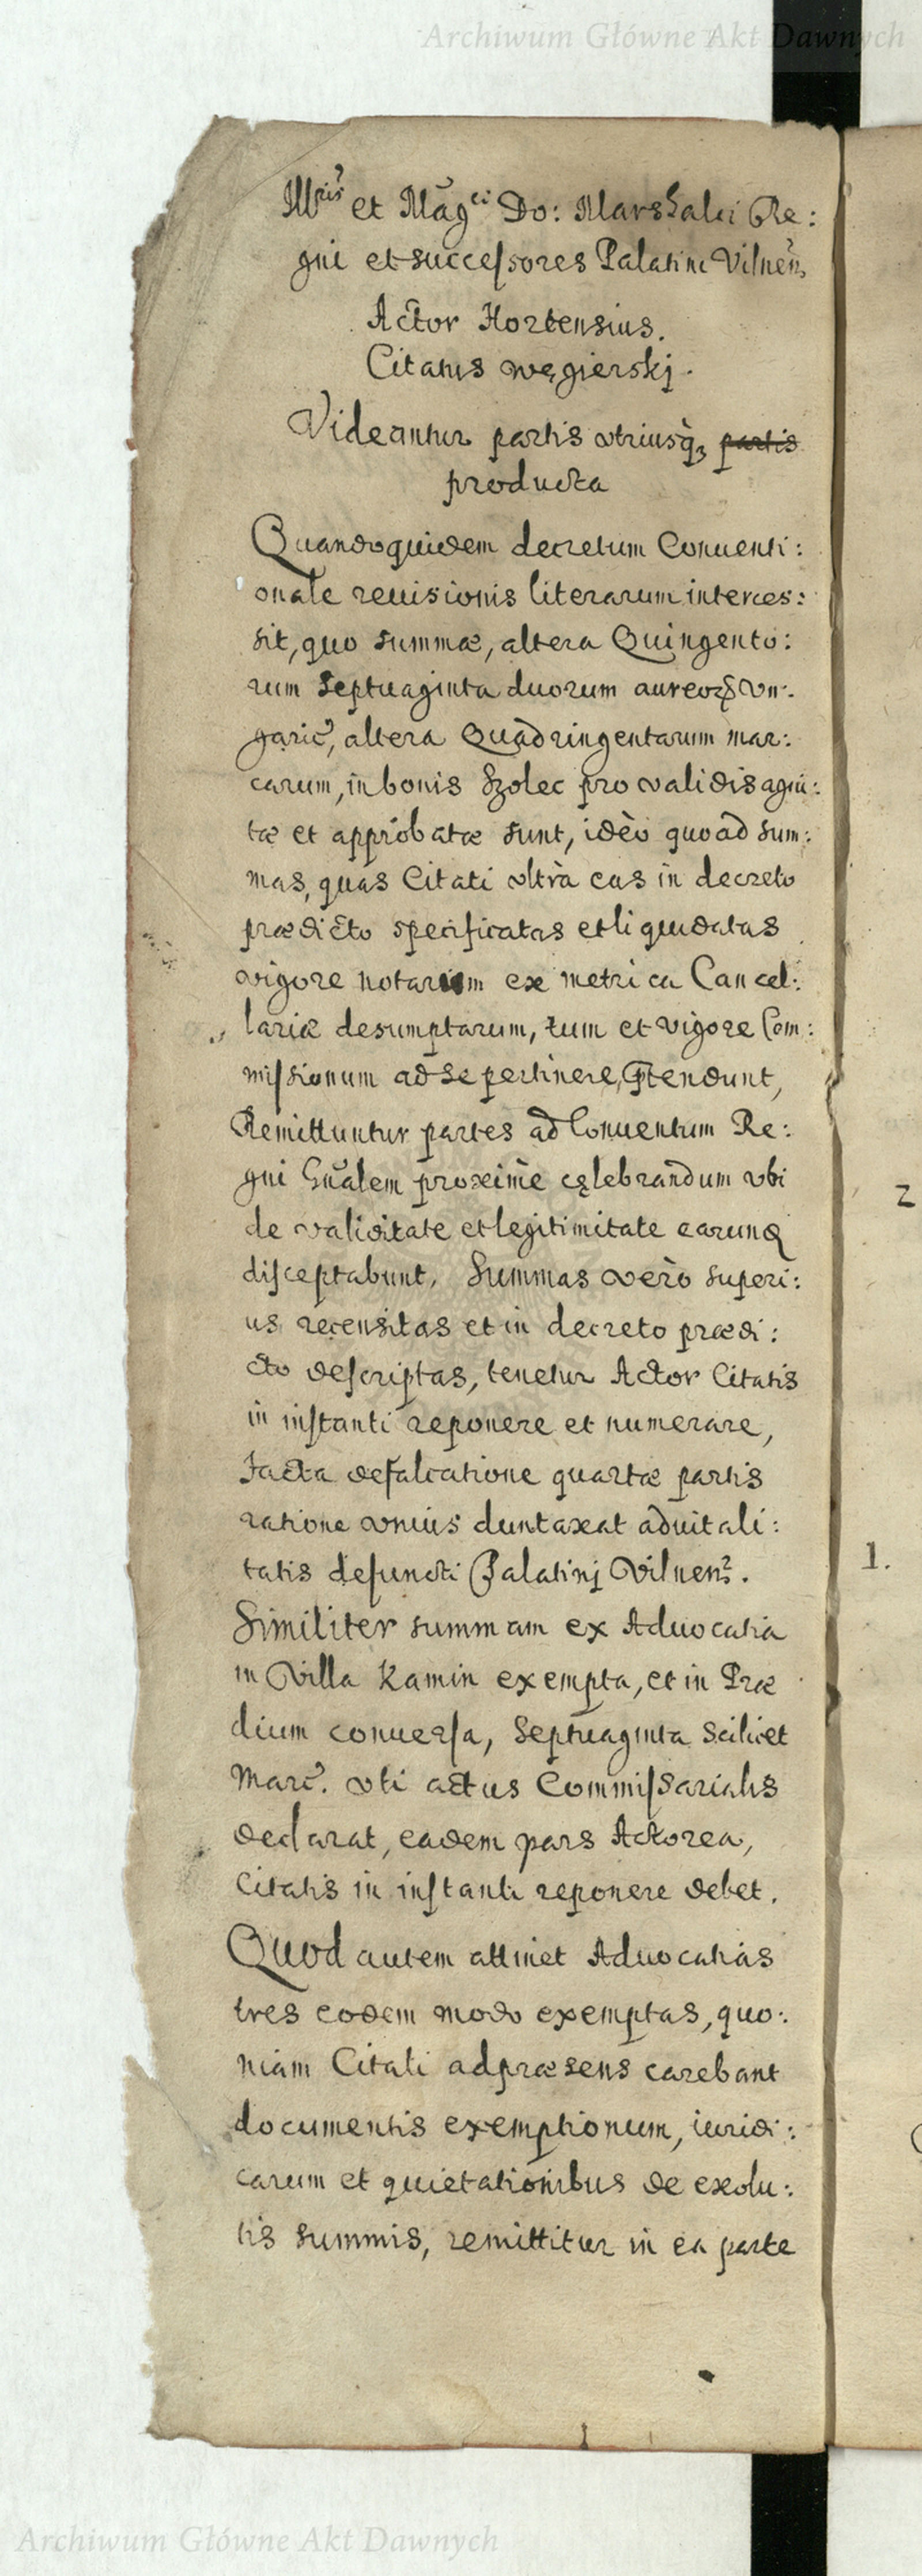 Archiwum Główne Akt Dawnych
Illris et Mag̃ci Do: Marshalci Re:
gni et successores Palatini Vilnen̄,
Actor Hortensius.
Citatus węgierskj.
Videantur partis vtriusq̃ partis
producta
Quandoquidem decretum Conuenti:
onale reuisionis literarum interces:
sit, quo summæ, altera Quingento:
rum Septuaginta duorum aureorꝝ Vn:
garic̃, altera Quadringentarum mar:
carum, in bonis Szolec pro validis agni:
tæ et approbatæ sunt, idèo quoad sum:
mas, quas Citati vltrà eas in decreto
prædicto specificatas et liquidatas
vigore notarum ex metrica Cancel:
lariæ desumptarum, tum et vigore Com:
missionum ad se pertinere, p̃tendunt,
Remittuntur partes ad Conuentum Re:
gni Gñalem proximè cęlebrandum vbi
de validitate et legitimitate earund
disceptabunt, Summas verò superi:
us recensitas et in decreto prædi:
cto descriptas, tenetur Actor Citatis
in instanti reponere et numerare,
facta defalcatione quartæ partis
ratione vnius duntaxat aduitali:
tatis defuncti Palatinj Vilnens̃.
Similiter summam ex Aduocatia
in Villa Kamin exempta, et in Præ
dium conuersa, Septuaginta Scilicet
Marc̃. vti actus Commissarialis
declarat, eadem pars Actorea,
Citatis in instanti reponere debet.
Quod autem attinet Aduocatias
tres eodem modo exemptas, quo:
niam Citati ad præsens carebant
documentis exemptionum, iuridi:
carum et quietationibus de exolu:
tis summis, remittitur in ea parte
2
1.
Archiwum Główne Akt Dawnych